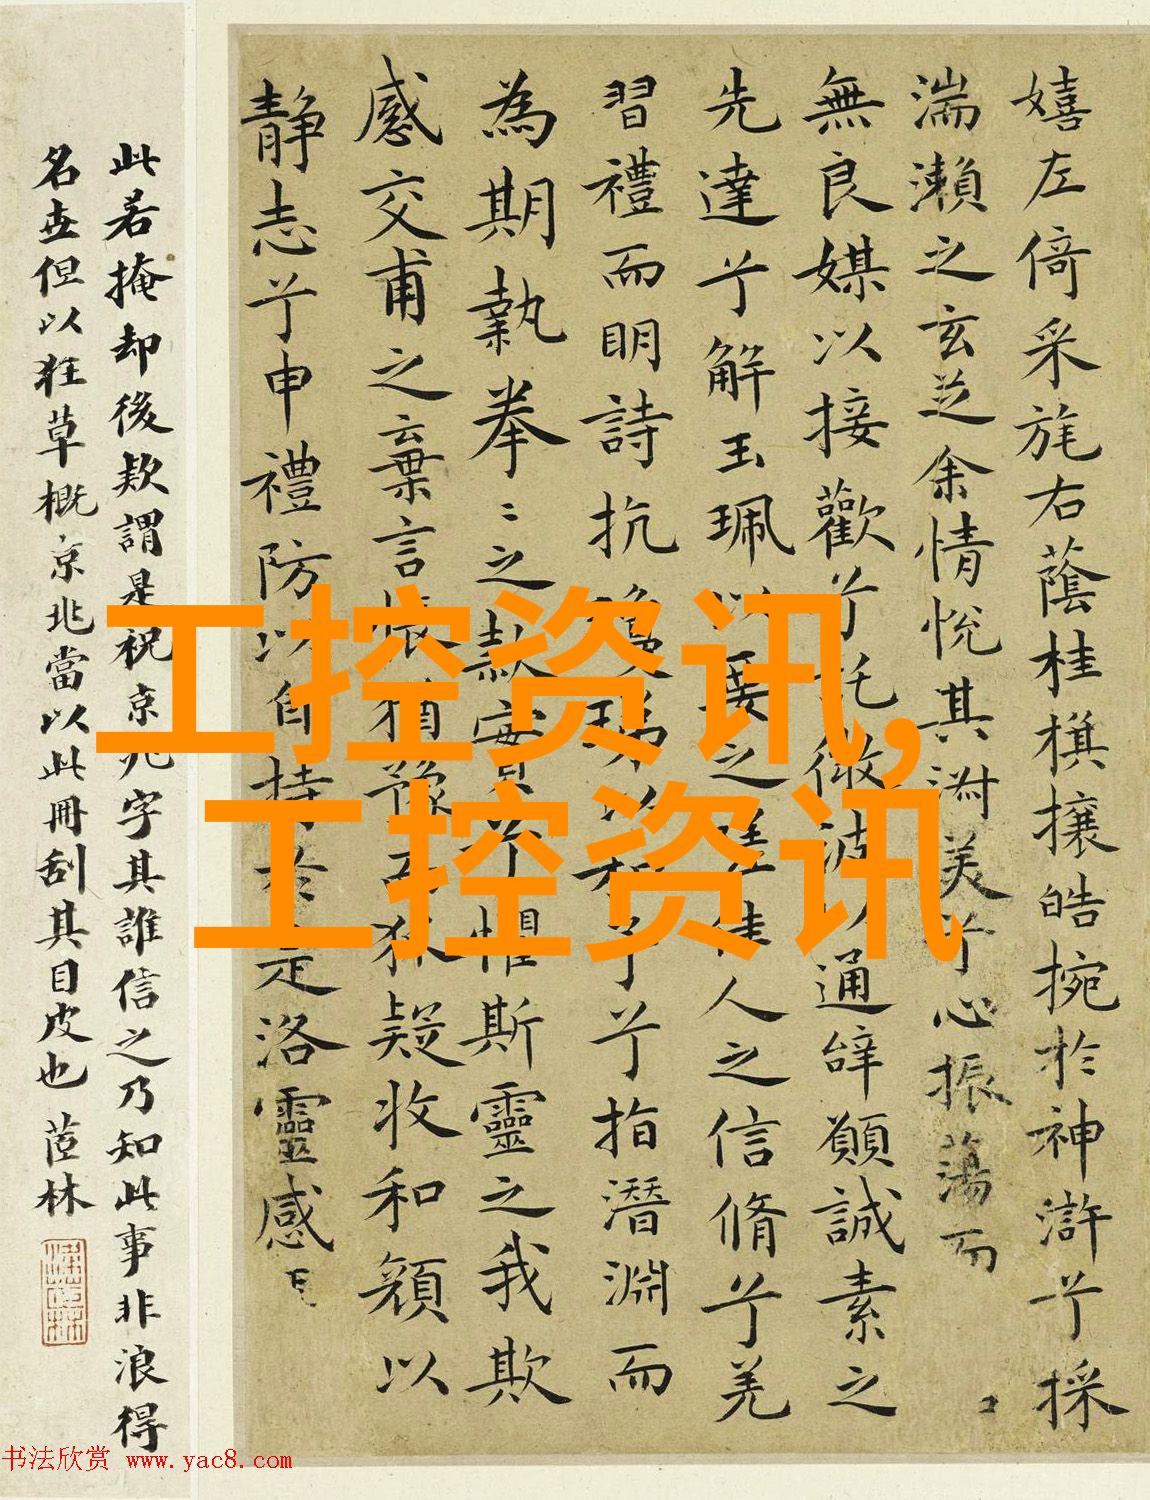 嬉左倚采旄右蔭桂旗攘皓捥於神滸兮採
湍瀨之玄芝余情悅其淑美兮心振蕩而
無良媒以接歡兮託微波以通辭願誠素之
先達兮解玉珮以要之嗟佳人之信脩兮羌
習禮而明詩抗瓊珶以和予兮指潛淵而
為期執拳〻之款實兮懼斯靈之我欺
感交甫之棄言悵猶豫而狐疑收和顏以
靜志兮申禮防以自持於是洛靈感
此若掩却後款謂是祝京兆字其誰信之乃知此事非浪得
名世但以狂草概京兆當以此冊刮其目皮也 茝林
工控资讯,
工控资讯
书法欣赏 www.yac8.com